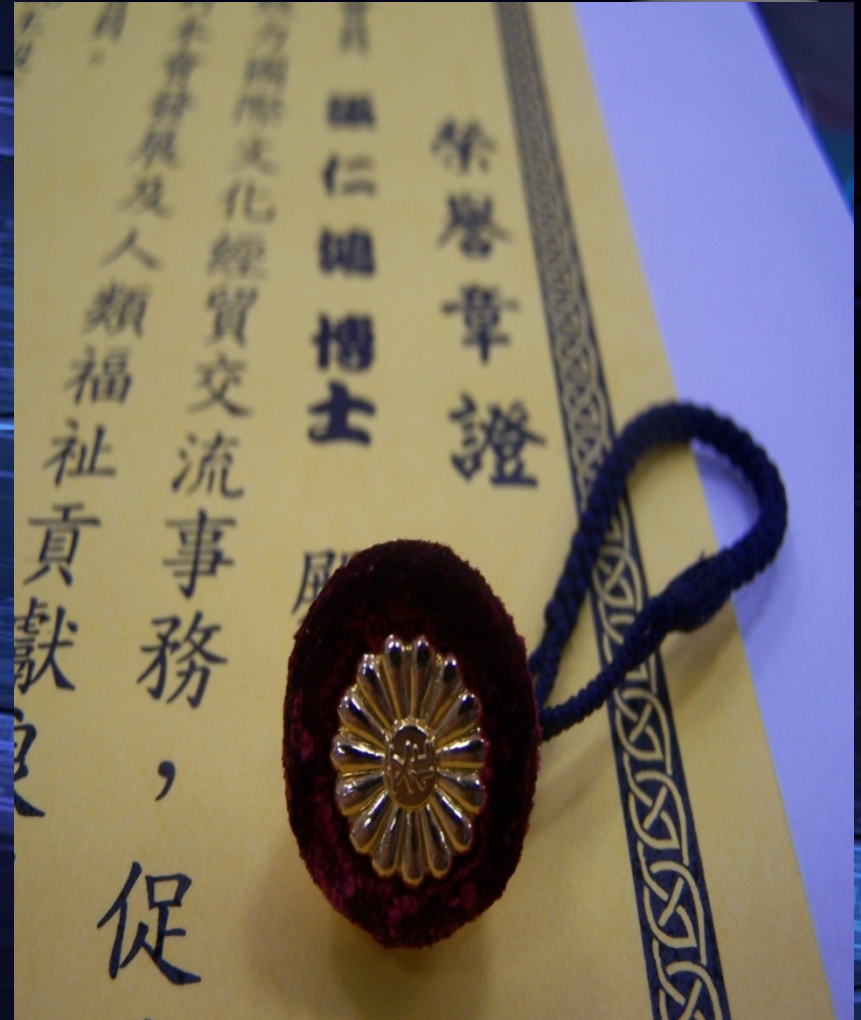 榮譽章證
員 仁 博士
力國際文化經貿交流事務，促
本會發展及人類福祉貢獻
員。